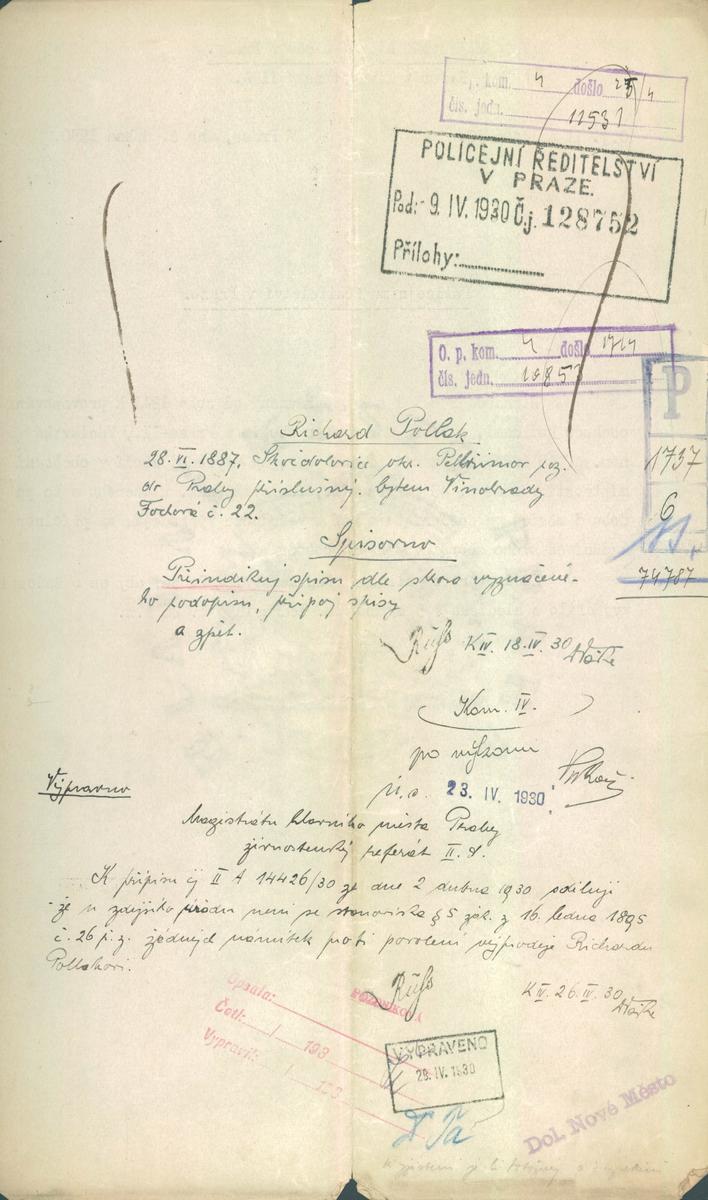 kom. 4 došlo 25/4
čís. jedn. 11531
POLICEJNÍ ŘEDITELSTVÍ
V PRAZE.
Pod: - 9. IV. 1930 Čj. 128752
Přílohy:
O. p. kom. 4 došlo 17/4
čís. jedn. 10853
P
1737
6
74787
Richard Pollak
28. VI. 1887, okr. Pelhřimov
do Prahy příslušný, bytem Vinohrady
Fochova č. 22.
Spisovno
Přiindikuj spisu dle skora vyznačené-
ho podopisu, připoj spisy
a zpět.
K IV. 18. IV. 30
Kom. IV.
po výkonu
23. IV. 1930
Výpravno
Magistrátu hlavního města Prahy
živnostenský referát II. A.
K přípisu čj II A 14426/30 ze dne 2 dubna 1930 sděluji
že u zdejšího úřadu není se stanoviska § 5 zák. z 16. ledna 1895
č. 26 ř. z. žádných námitek proti povolení výprodeje Richardu
Pollakovi.
K IV. 26. IV. 30
Opsala:
Četl: / 193
Vypravil: / 193
VYPRAVENO
29. IV. 1930
Dol. Nové Město